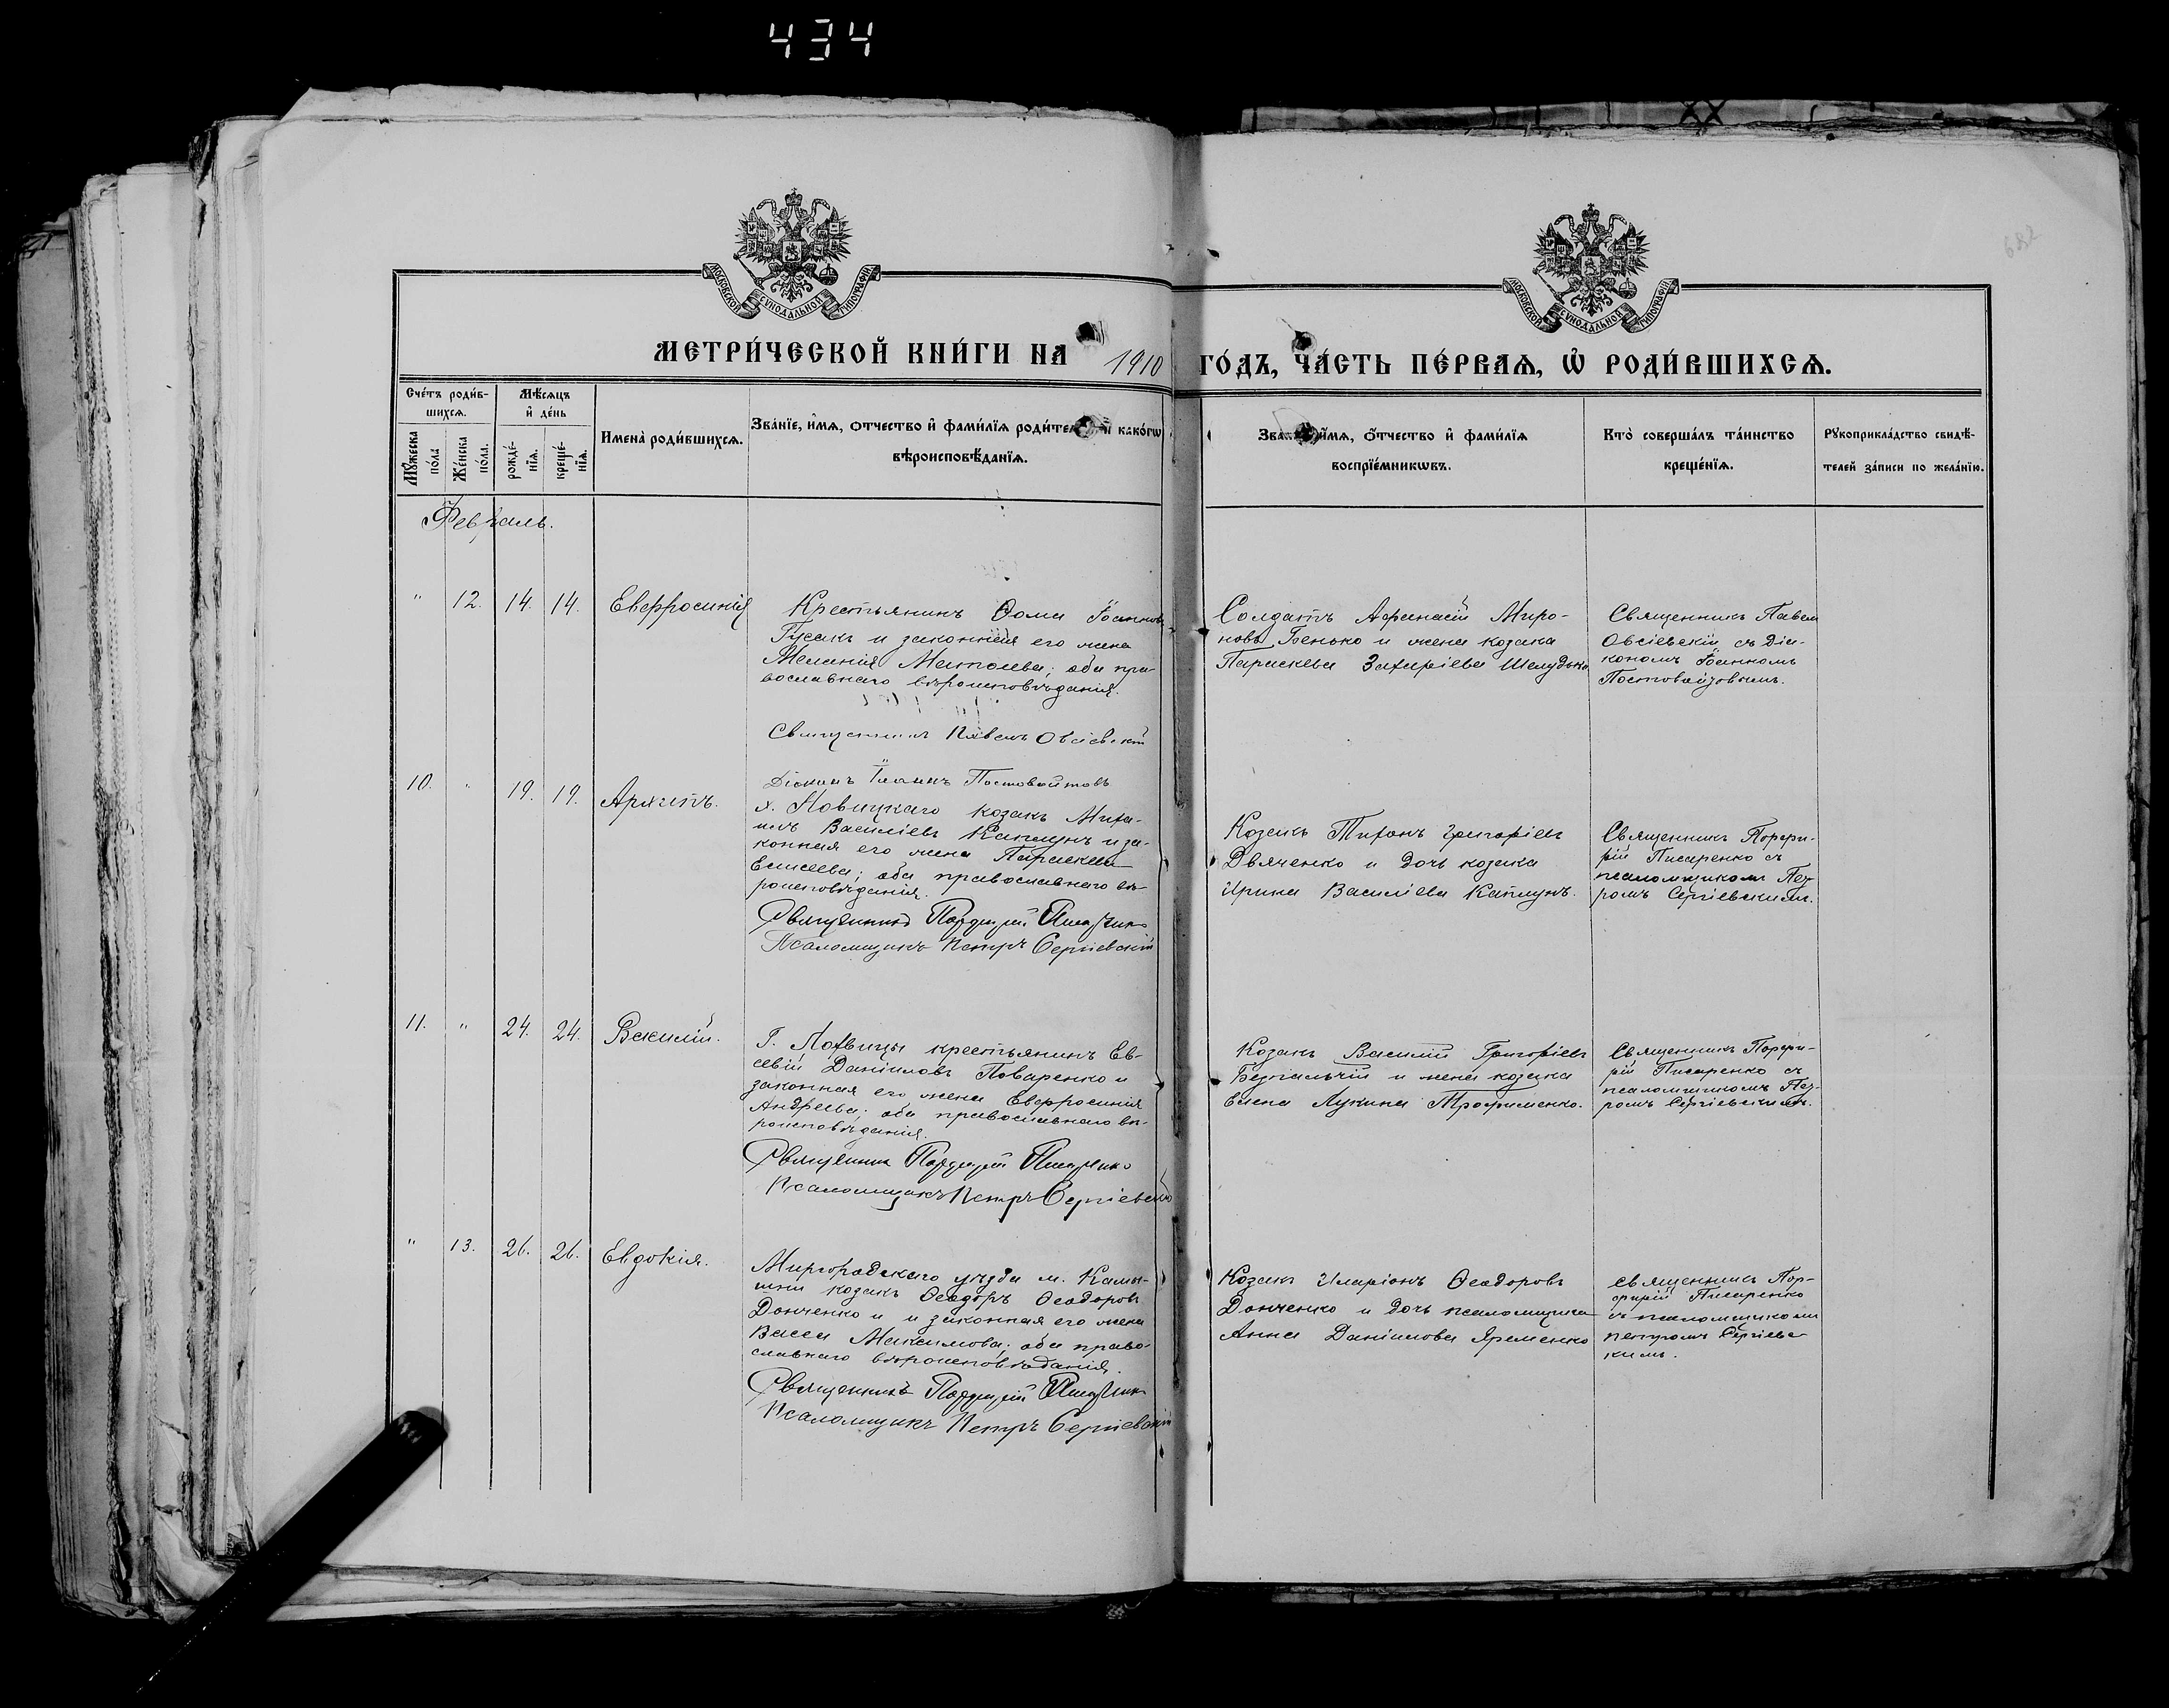 434
682
МОСКОВСКОЙ СѴНОДАЛЬНОЙ ТИПОГРАФІИ
МОСКОВСКОЙ СѴНОДАЛЬНОЙ ТИПОГРАФІИ
МЕТРИ́ЧЕСКОЙ КНИ́ГИ НА 1910 ГО́ДЪ, ЧА́СТЬ ПЕ́РВАѦ, Ѽ РОДИ́ВШИХСѦ.
Сче́тъ роди́в-
шихсѧ.
Мꙋжеска
по́ла
Же́нска
по́ла.
Мѣ́сѧцъ
и҆ де́нь
рожде́-
нїѧ.
креще́-
нїѧ.
Имена̀ роди́вшихсѧ.
Зва́нїе, и҆́мѧ, о҆́тчество и҆ фами́лїѧ роди́тел и҆ како́гѡ
вѣроисповѣ́данїѧ.
Зва и҆́мѧ, о҆́тчество и҆ фами́лїѧ
воспрїе́мникѡвъ.
Кто̀ соверша́лъ та́инство
креще́нїѧ.
Рꙋкоприкла́дство свидѣ́-
телей за́писи по жела́нїю.
Февраль.
" 12. 14. 14. Евфросинія
Крестьянинъ Ѳома Іоанновъ
Гусакъ и законная его жена
Меланія Матѳеева; оба пра-
вославнаго вѣроисповѣданія.
Священникъ Павелъ Овсіевскій
Діаконъ Іоаннъ Постовойтовъ
Солдатъ Афанасій Миро-
новъ Бенько и жена козака
Параскева Захаріева Шелудько
Священникъ Павелъ
Овсіевскій съ Діа-
кономъ Іоанномъ
Постовойтовымъ.
10. " 19. 19. Архипъ.
х. Новицкаго козакъ Миха-
илъ Василіевъ Каплунъ и за-
конная его жена Параскева
Елисеева; оба православнаго вѣ-
роисповѣданія.
Священникъ Порфирій Писаренко
Псаломщикъ Петръ Сергіевскій
Козакъ Тихонъ Григоріевъ
Дьяченко и дочь козака
Ирина Василіева Каплунъ.
Священникъ Порфи-
рій Писаренко съ
псаломщикомъ Пет-
ромъ Сергіевскимъ.
11. " 24. 24. Василій.
Г. Лохвицы крестьянинъ Ев-
севій Даніиловъ Поваренко и
законная его жена Евфросинія
Андреева; оба православнаго вѣ-
роисповѣданія.
Священникъ Порфирій Писаренко
Псаломщикъ Петръ Сергіевскій
Козакъ Василій Григоріевъ
Безпальчій и жена козака
Елена Лукина Трофименко.
Священникъ Порфи-
рій Писаренко съ
псаломщикомъ Пет-
ромъ Сергіевскимъ.
" 13. 26. 26. Евдокія.
Миргородскаго уѣзда м. Камы-
шни козакъ Ѳеодоръ Ѳеодоровъ
Донченко и и законная его жена
Васса Максимова; оба право-
славнаго вѣроисповѣданія.
Священникъ Порфирій Писаренко
Псаломщикъ Петръ Сергіевскій
Козакъ Иларіонъ Ѳеодоровъ
Донченко и дочь псаломщика
Анна Даніилова Яременко
Священникъ Пор-
фирій Писаренко
съ псаломщикомъ
Петромъ Сергіевс-
кимъ.